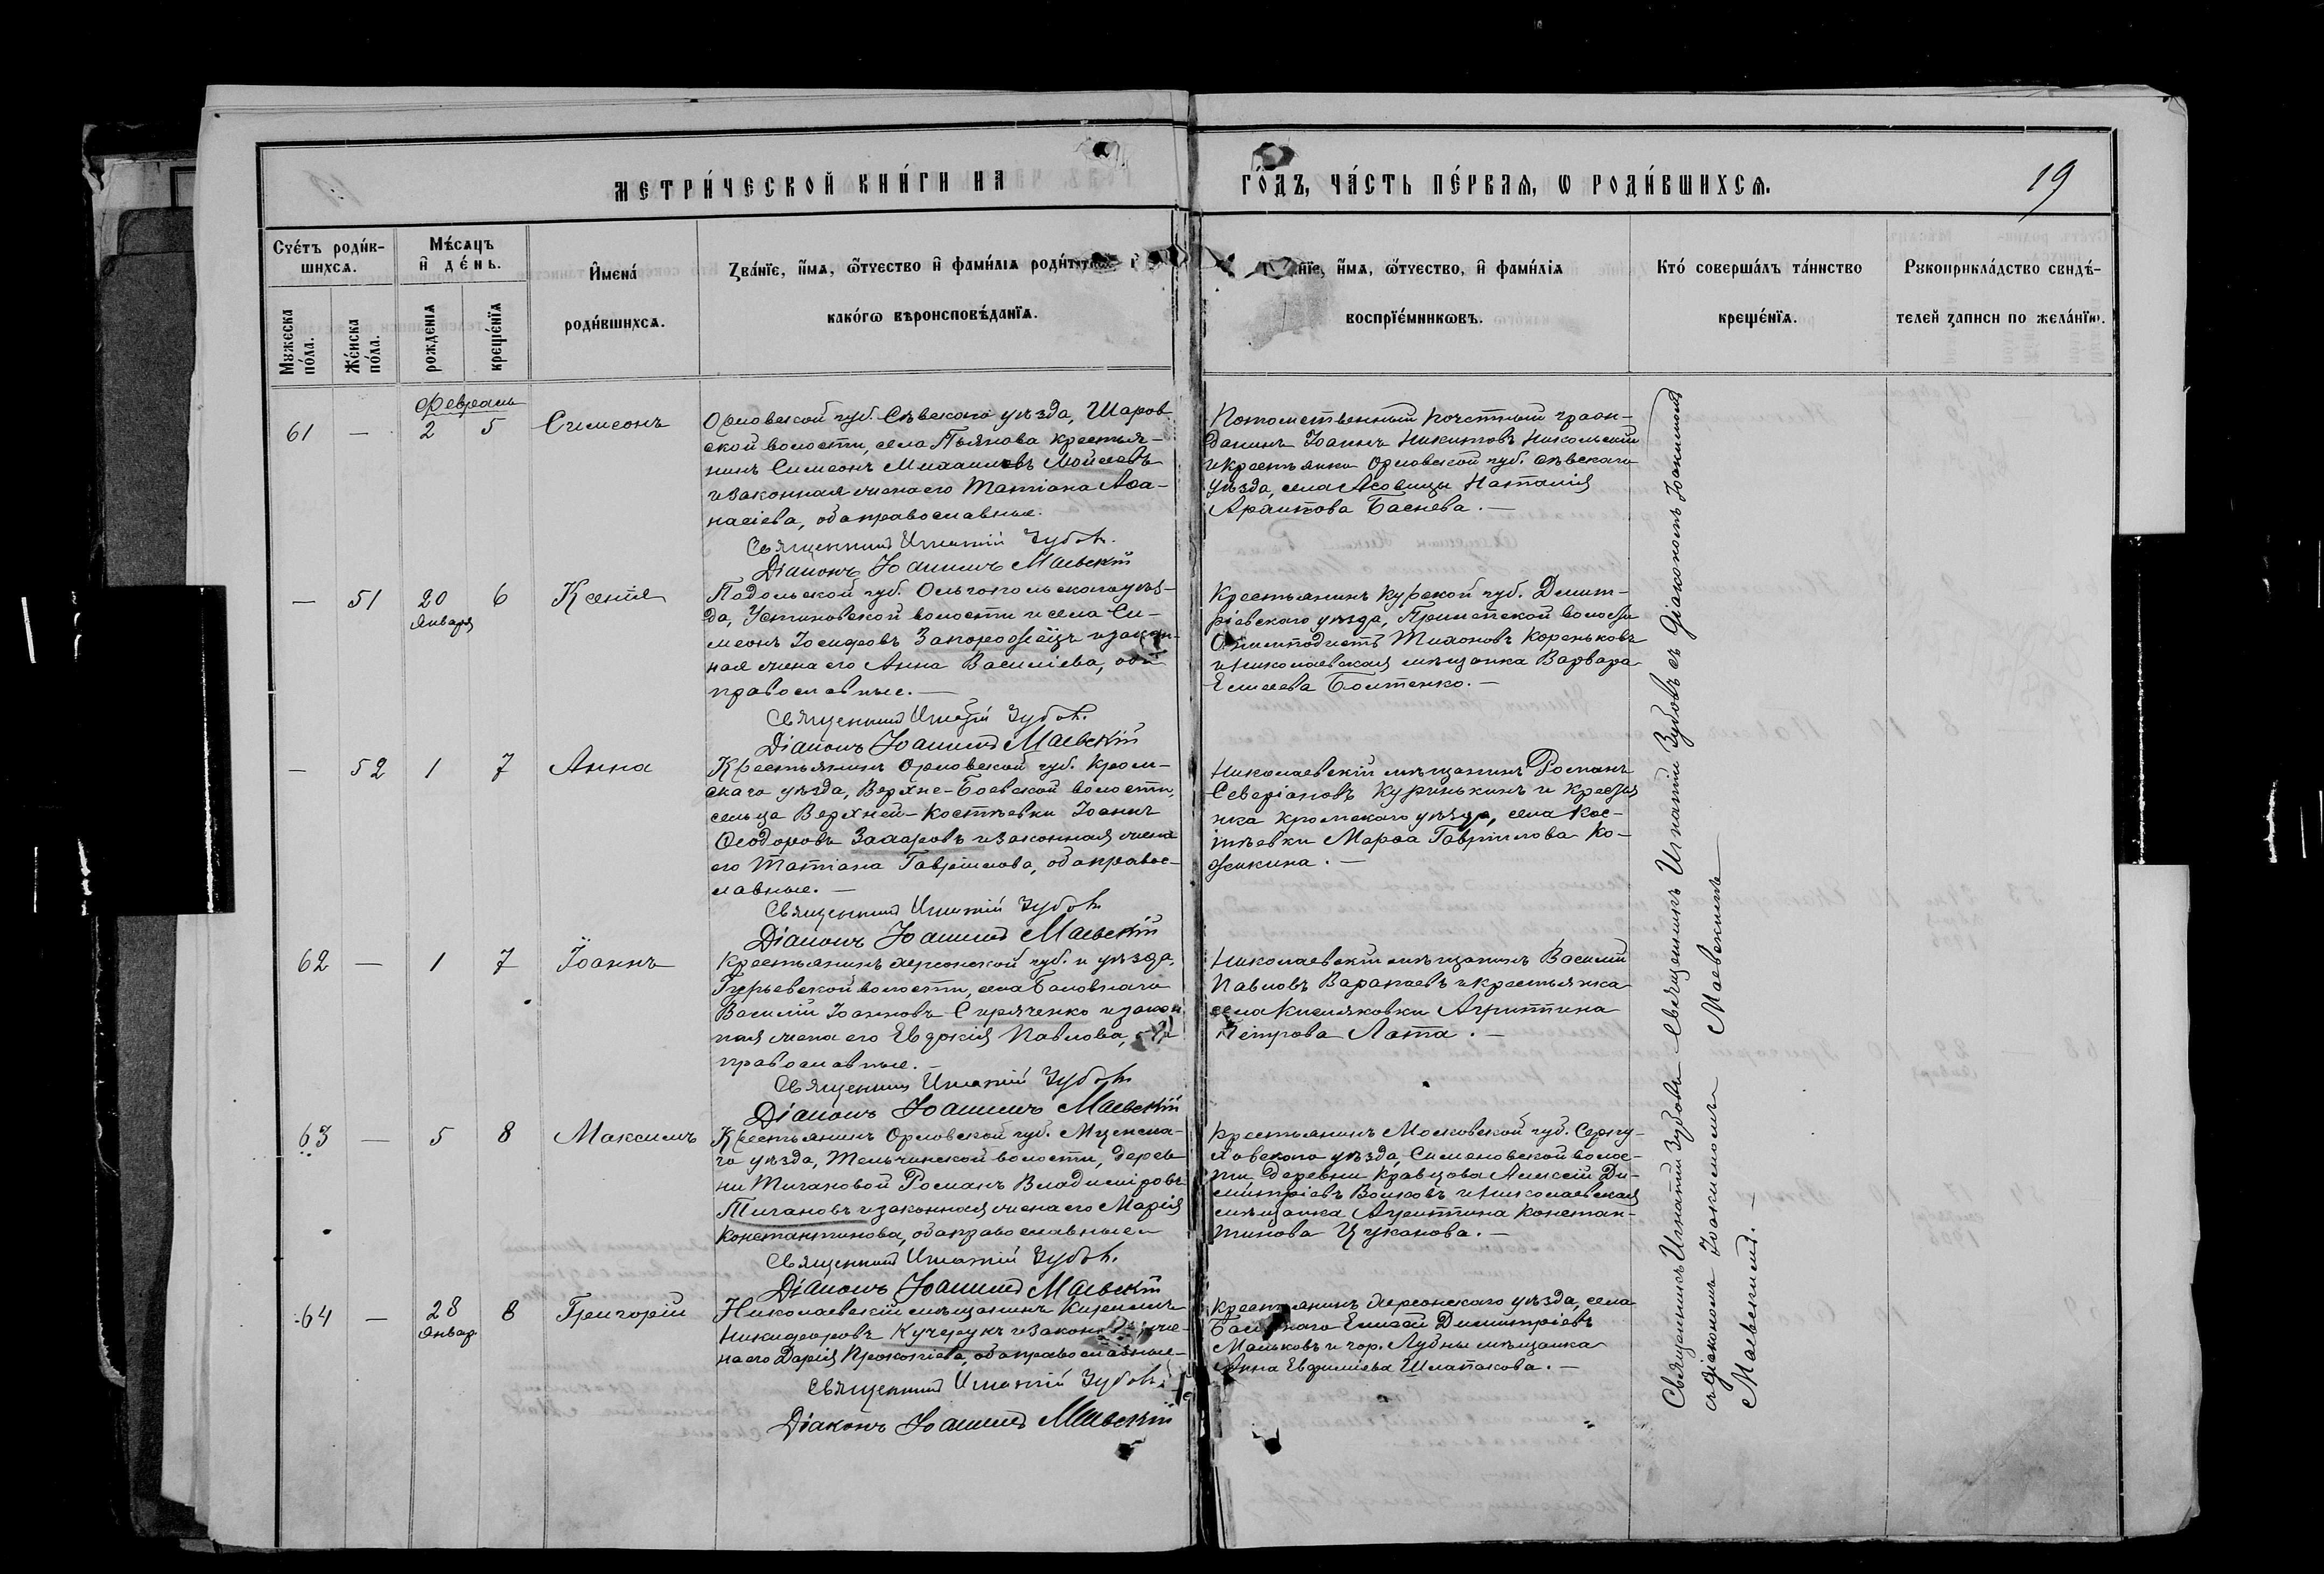 МЕТРИ́ЧЕСКОЙ КНИ́ГИ НА
ГО́ДЪ, ЧА́СТЬ ПЕ́РВАѦ, Ѡ РОДИ́ВШИХСѦ.
19
Сче́тъ роди́в-
шихсѧ.
Мѣ́сѧцъ
и҆ де́нь.
И҆мена́
роди́вшихсѧ.
Зва́нїе, и҆́мѧ, ѻ҆́тчество и҆ фами́лїѧ роди́телей
како́гѡ вѣроисповѣ́данїѧ.
и҆́мѧ, ѻ҆́тчество, и҆ фами́лїѧ
воспрїе́мникѡвъ.
Кто́ соверша́лъ та́инство
креще́нїѧ.
Рꙋкоприкла́дство свидѣ́-
телей записи по жела́нїю.
Мꙋжеска
по́ла.
Же́нска
по́ла.
рожденїѧ
креще́нїѧ
Февраль
61
—
2
5
Симеонъ
Орловской губ. Сѣвскаго уѣзда, Шаров
ской волости, села Пьянова крестья-
нинъ Симеонъ Михаиловъ Мойсеевъ
и законная жена его Татіана Аѳа-
насіева, оба православные.
Священникъ Игнатій Зубовъ.
Діаконъ Іоакимъ Маевскій
Потомственный почетный граж-
данинъ Іоаннъ Никитовъ Никольскій
и крестьянка Орловской губ. Сѣвскаго
уѣзда, села Асовицы Наталія
Архипова Баснева. —
—
51
20
Января
6
Ксенія
Подольской губ. Ольгопольскаго уѣз-
да, Устиновской волости и села Си-
меонъ Іосифовъ Запорожецъ и закон-
ная жена его Анна Василіева, оба
православные. —
Священникъ Игнатій Зубовъ.
Діаконъ Іоакимъ Маевскій
Крестьянинъ Курской губ. Дмит-
ріевскаго уѣзда, волости
Тихоновъ Кореньковъ
и Николаевская мѣщанка Варвара
Елисеева Болтенко. —
—
52
1
7
Анна
Крестьянинъ Орловской губ. Кром-
скаго уѣзда, Верхне-Боевской волости,
сельца Верхней-Костѣевки Іоаннъ
Ѳеодоровъ Захаровъ и законная жена
его Татіана Гавріилова, оба правос-
лавные. —
Священникъ Игнатій Зубовъ.
Діаконъ Іоакимъ Маевскій
Николаевскій мѣщанинъ Романъ
Северіановъ Куринькинъ и кресть
нка Кромскаго уѣзда, села Кос-
тѣевки Марѳа Гавріилова Ко-
жикина. —
62
—
1
7
Іоаннъ
Крестьянинъ Херсонской губ. и уѣзда,
Гурьевской волости, села Баловнаго
Василій Іоанновъ Сиряченко и закон
ная жена его Евдокія Павлова, оба
православные. —
Священникъ Игнатій Зубовъ
Діаконъ Іоакимъ Маевскій
Николаевскій мѣщанинъ Василій
Павловъ Варапаевъ и крестьянка
села Кисляковки Агриппина
Петрова Лата. —
63
—
5
8
Максимъ
Крестьянинъ Орловской губ. Мценска-
го уѣзда, Тельчинской волости, дерев-
ни Тигановой Романъ Владиміровъ
Тигановъ и законная жена его Марія
Константинова, оба православные —
Священникъ Игнатій Зубовъ.
Діаконъ Іоакимъ Маевскій
Крестьянинъ Московской губ. Серпу-
ховскаго уѣзда, Симеоновской волос-
ти, деревни Кравцова Алексій Ди-
митріевъ Волковъ и Николаевская
мѣщанка Агриппина Констан-
тинова Цуканова. —
64
—
28
Январ
8
Григорій
Николаевскій мѣщанинъ Кириллъ
Никифоровъ Кучерукъ и законная же-
на его Дарія Прокопіева, оба православные —
Священникъ Игнатій Зубовъ.
Діаконъ Іоакимъ Маевскій
Крестьянинъ Херсонскаго уѣзда, села
Баловнаго Елисей Димитріевъ
Мальковъ и гор. Лубны мѣщанка
Анна Евфиміева Шлапакова. —
Священникъ Игнатій Зубовъ Священникъ Игнатій Зубовъ съ діакономъ Іоакимомъ
съ діакономъ Іоакимомъ Маевскимъ
Маевскимъ. —